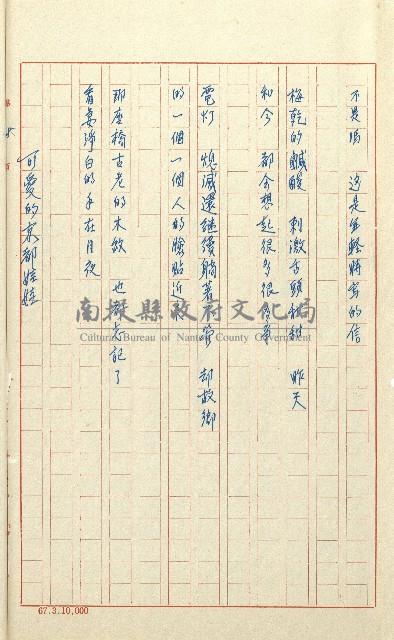 不是嗎 這是年輕時寫的信
梅乾的鹹酸 刺激舌頭 昨天
和今 都會想起很多很多事
電灯 熄滅還繼續躺著不管 却故鄉
的一個一個人的臉貼近
那座橋古老的木紋 也都忘記了
看鼻淨白的手在月夜
可愛的京都娃娃
南投縣政府文化局
Cultural Bureau of Nantou County Government
67.3.10,000